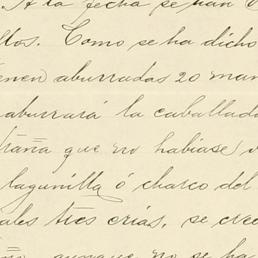 A la fecha se han
llos. Como se ha dicho
enen aburradas 20 man
aburrará la caballada
traña que no habiase
lagunilla ó charco del
ales tres crias, se cree
no, aunque no se ha